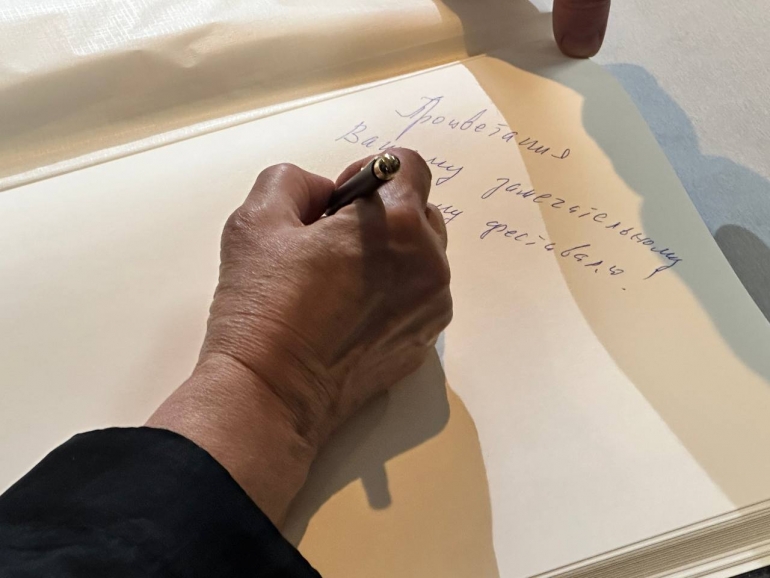 Процветания
Вашему замечательному
фестивалю.